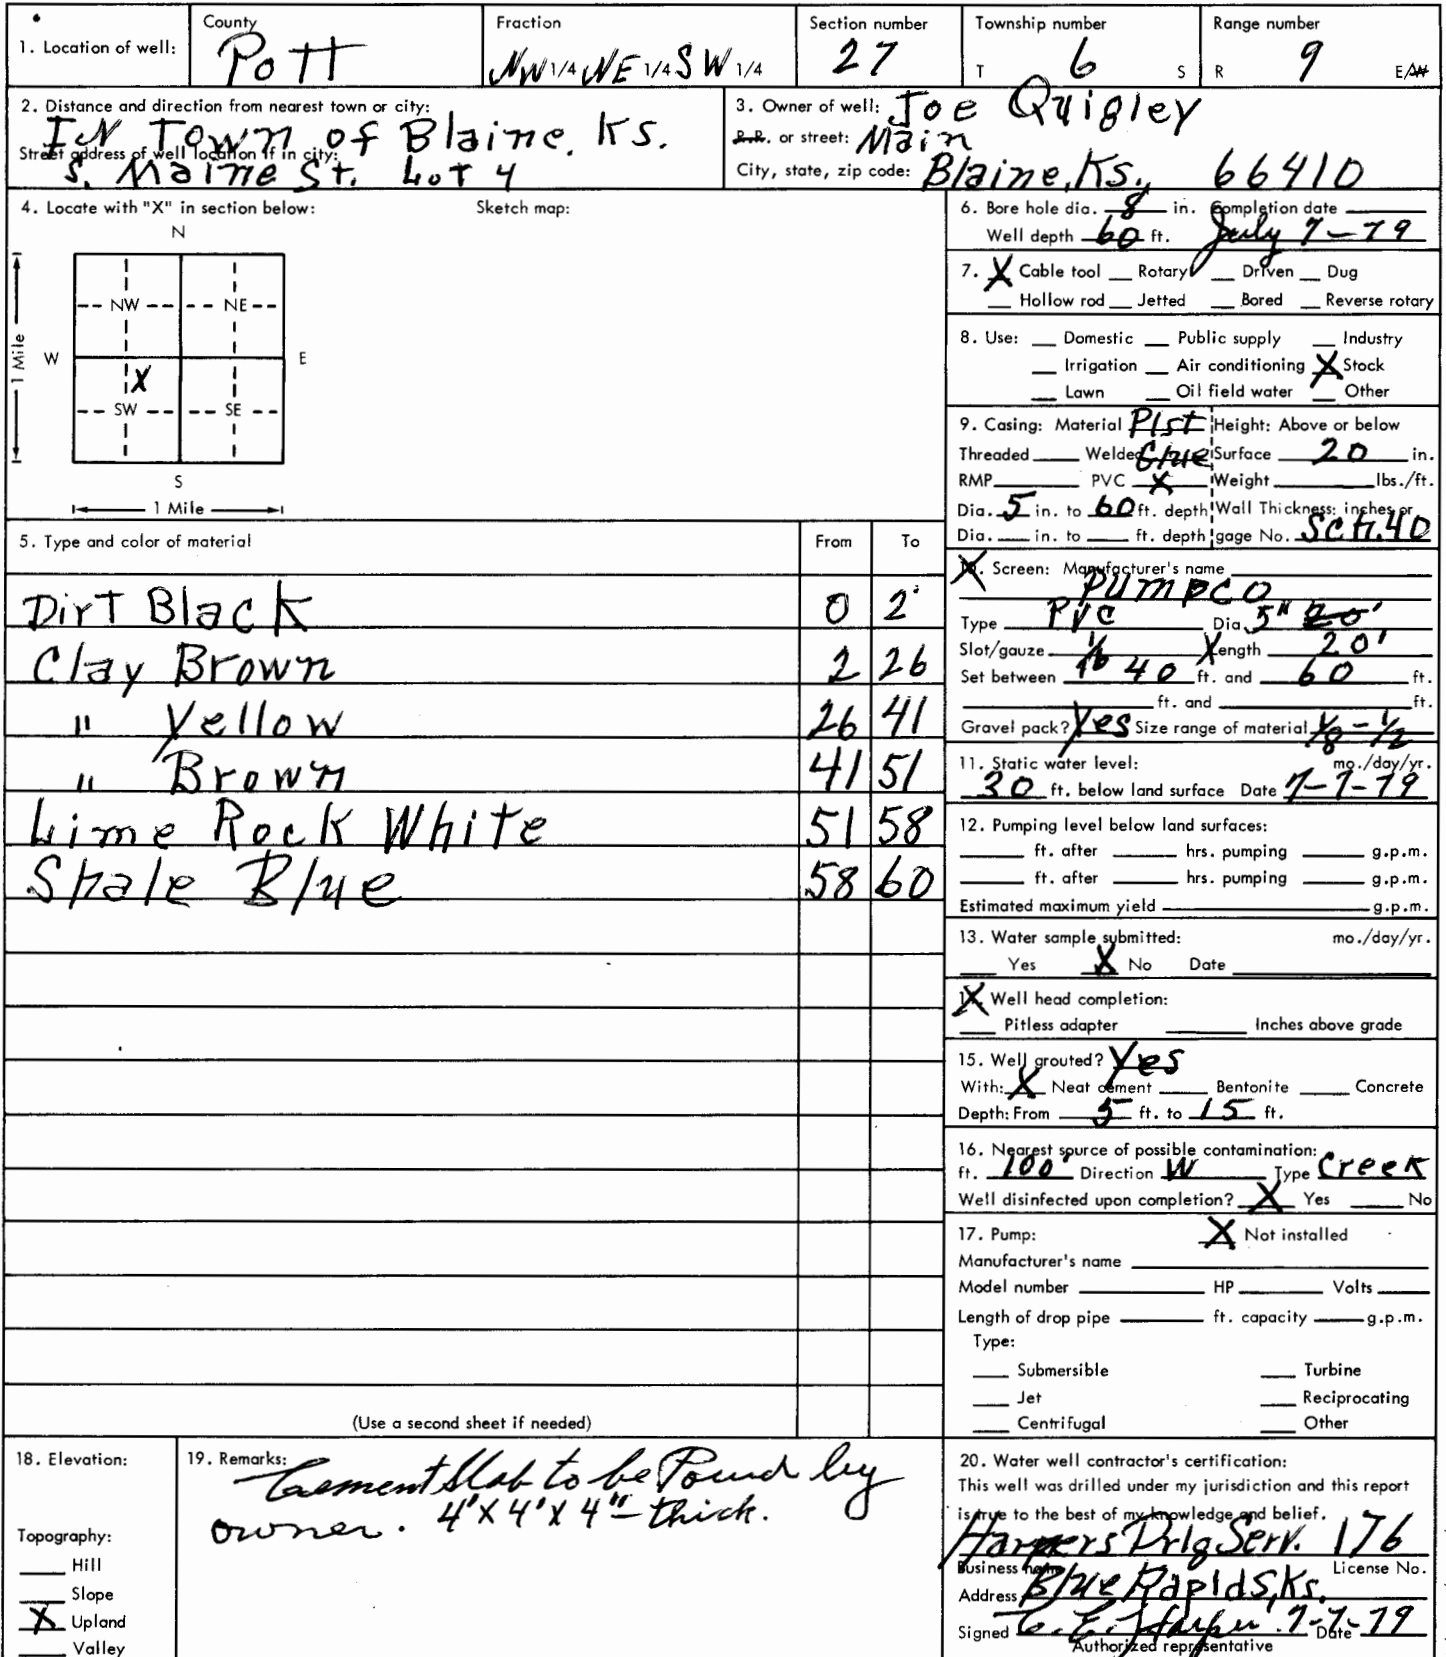 1. Location of well: County Pott Fraction NW 1/4 NE 1/4 SW 1/4 Section number 27 Township number T 6 S Range number R 9 E/W
2. Distance and direction from nearest town or city:
IN Town of Blaine, Ks.
Street address of well location if in city:
S. Maine St. Lot 4
3. Owner of well: Joe Quigley
R.R. or street: Main
City, state, zip code: Blaine, Ks., 66410
4. Locate with "X" in section below: Sketch map:
N
NW NE
W E
1 Mile
X
SW SE
S
1 Mile
5. Type and color of material From To
Dirt Black 0 2'
Clay Brown 2 26
" Yellow 26 41
" Brown 41 51
Lime Rock White 51 58
Shale Blue 58 60
(Use a second sheet if needed)
6. Bore hole dia. 8 in. Completion date
Well depth 60 ft. July 7-79
7. X Cable tool Rotary Driven Dug
Hollow rod Jetted Bored Reverse rotary
8. Use: Domestic Public supply Industry
Irrigation Air conditioning X Stock
Lawn Oil field water Other
9. Casing: Material Plst Height: Above or below
Threaded Welded Glue Surface 20 in.
RMP PVC X Weight lbs./ft.
Dia. 5 in. to 60 ft. depth Wall Thickness: inches or
Dia. in. to ft. depth gage No. Sch. 40
X Screen: Manufacturer's name
PUMPCO
Type PVC Dia. 5" 20'
Slot/gauze 1/16 Length 20'
Set between 40 ft. and 60 ft.
ft. and ft.
Gravel pack? Yes Size range of material 1/8 - 1/2
11. Static water level: mo./day/yr.
30 ft. below land surface Date 7-7-79
12. Pumping level below land surfaces:
ft. after hrs. pumping g.p.m.
ft. after hrs. pumping g.p.m.
Estimated maximum yield g.p.m.
13. Water sample submitted: mo./day/yr.
Yes X No Date
X Well head completion:
Pitless adapter Inches above grade
15. Well grouted? Yes
With: X Neat cement Bentonite Concrete
Depth: From 5 ft. to 15 ft.
16. Nearest source of possible contamination:
ft. 100' Direction W Type Creek
Well disinfected upon completion? X Yes No
17. Pump: X Not installed
Manufacturer's name
Model number HP Volts
Length of drop pipe ft. capacity g.p.m.
Type:
Submersible Turbine
Jet Reciprocating
Centrifugal Other
18. Elevation:
Topography:
Hill
Slope
X Upland
Valley
19. Remarks: Cement Slab to be Pourd by
owner. 4'X4'X4"-thick.
20. Water well contractor's certification:
This well was drilled under my jurisdiction and this report
is true to the best of my knowledge and belief.
Harpers Drlg Serv. 176
Business name License No.
Address Blue Rapids, Ks.
Signed C. E. Harper Date 7-7-79
Authorized representative